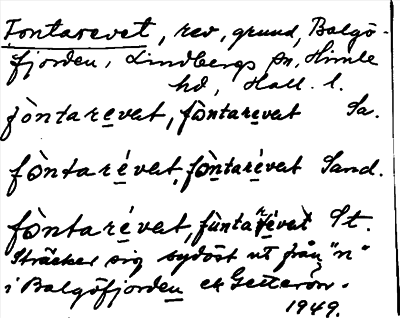 Fontarevet, rev, grund, Balgö-
fjorden, Lindbergs sn, Himle
hd, Hall. l.
fòntarevet, fòntarevet Sa.
fòntarévet, fòntarévet Sand.
fòntarévet, fùntarévet St.
Sträcker sig sydöst ut från "n"
i Balgöfjorden ek Getterön.
1949.